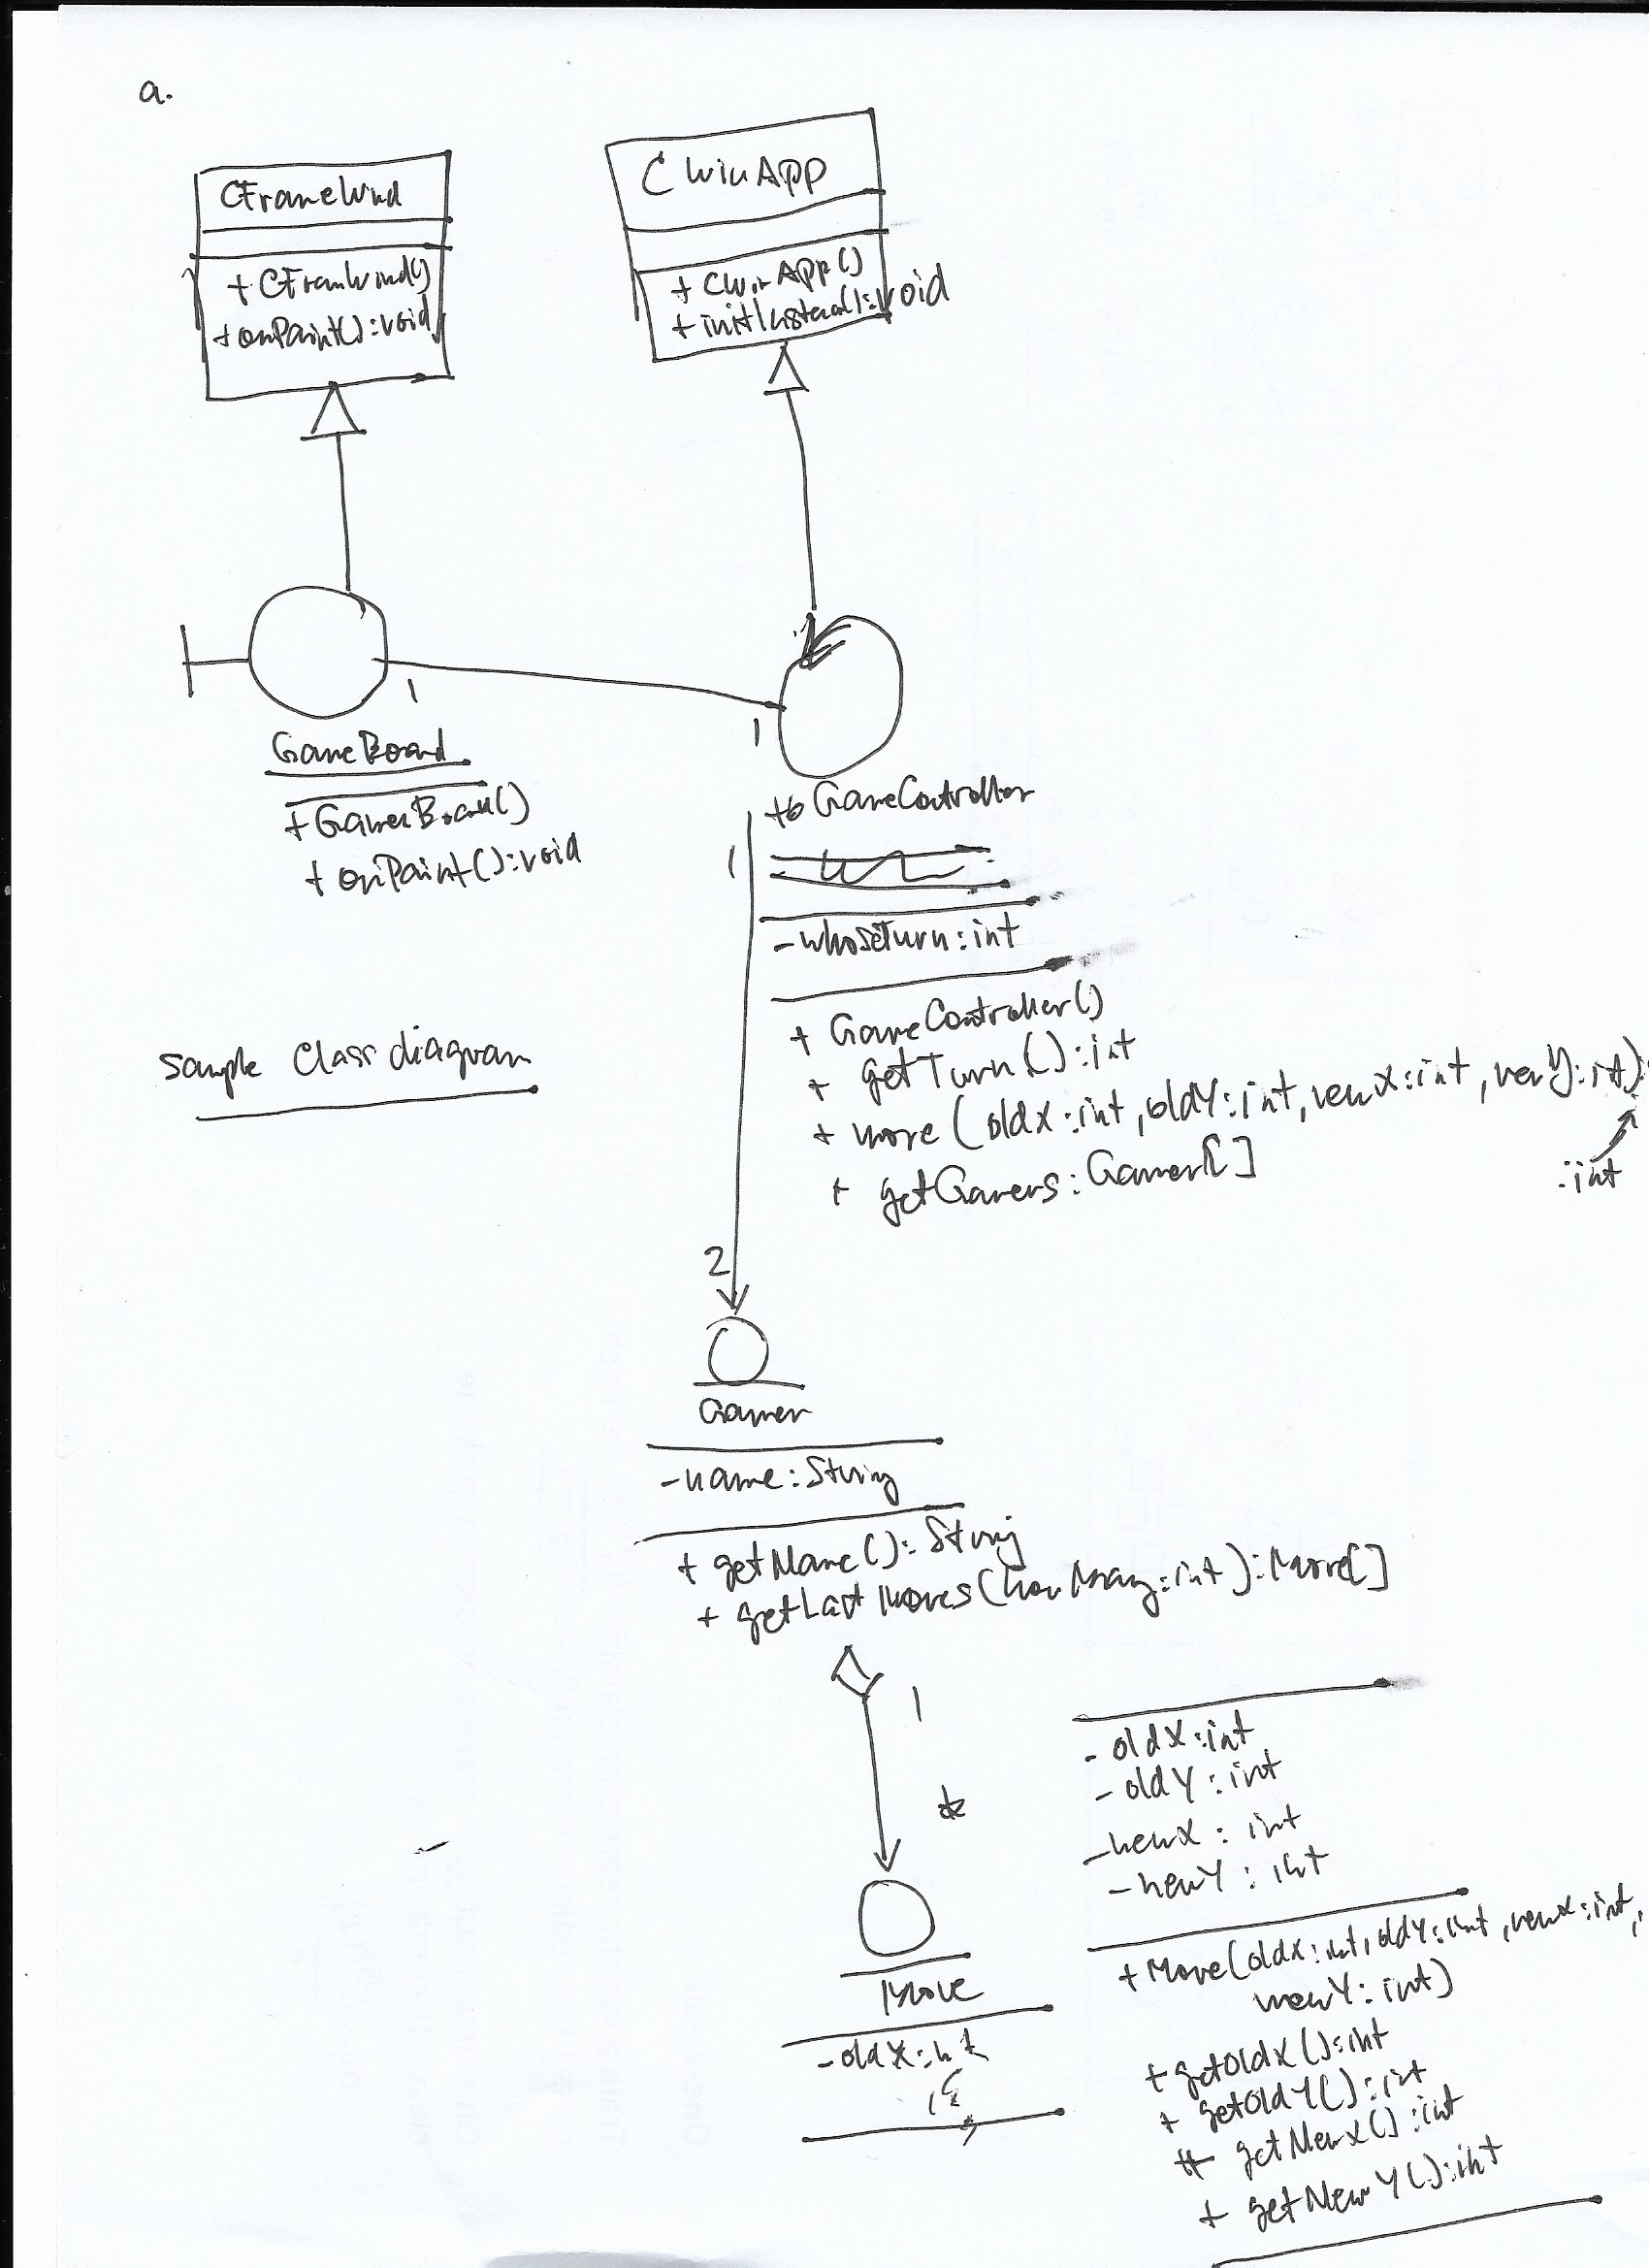 a.
CFrameWnd
+ CFramWnd()
+ onPaint(): void
CWinAPP
+ CWinAPP()
+ initInstance(): void
1
1
GameBoard
+ GameBoard()
+ onPaint(): void
GameController
1
- whoseTurn: int
+ GameController()
+ getTurn(): int
+ move (oldX: int, oldY: int, newX: int, newY: int)
: int
+ getGamers: Gamer[]
Sample Class diagram
2
Gamer
- name: String
+ getName(): String
+ getLastMoves(howMany: int): Move[]
1
*
Move
- oldX: int
- oldX: int
- oldY: int
- newX: int
- newY: int
+ Move(oldX: int, oldY: int, newX: int,
newY: int)
+ getOldX(): int
+ getOldY(): int
+ getNewX(): int
+ getNewY(): int